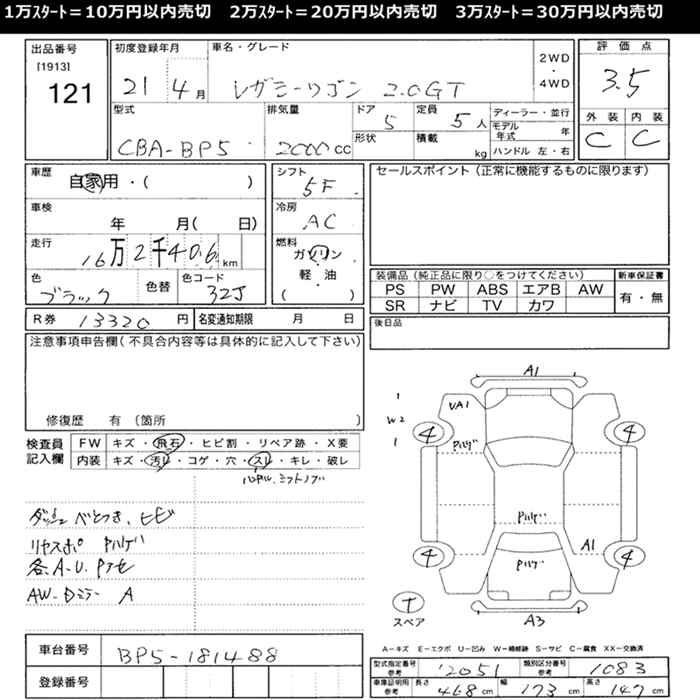 1万スタート＝10万円以内売切　2万スタート＝20万円以内売切　3万スタート＝30万円以内売切
出品番号
[1913]
121
初度登録年月
21 4月
車名・グレード
レガシーワゴン 2.0GT
2WD
・
4WD
評価点
3.5
外装 内装
C C
型式
CBA-BP5
排気量
2000cc
ドア 5
形状
定員 5人
積載 kg
ディーラー・並行
モデル年式 年
ハンドル 左・右
車歴
自家用・( )
車検
年 月( 日)
走行
16万2千406km
色
ブラック
色替
色コード
32J
シフト
5F
冷房
AC
燃料
ガソリン
軽・油
( )
セールスポイント（正常に機能するものに限ります）
装備品（純正品に限り○をつけてください）
PS PW ABS エアB AW
SR ナビ TV カワ
新車保証書
有・無
R券 13320円
名変通知期限 月 日
後日品
注意事項申告欄（不具合内容等は具体的に記入して下さい）
修復歴 有（箇所 ）
検査員
記入欄
FW キズ・飛石・ヒビ割・リペア跡・X要
内装 キズ・汚レ・コゲ・穴・スレ・キレ・破レ
ハンドル、シフトノブ
ダッシュ べとつき、ヒビ
リヤスポ Pハゲ
各A-U. Pアセ
AW-Dミラー A
車台番号
BP5-181488
登録番号
A1
1
W2
1
UA1
4
4
Pハゲ
Pハゲ
Pハゲ
A1
4
4
T
スペア
A3
A－キズ E－エクボ U－凹み W－補修跡 S－サビ C－腐食 XX－交換済
型式指定番号
参考
12051
類別区分番号
参考
1083
車庫証明用
参考
長さ 468cm 幅 173cm 高さ 147cm